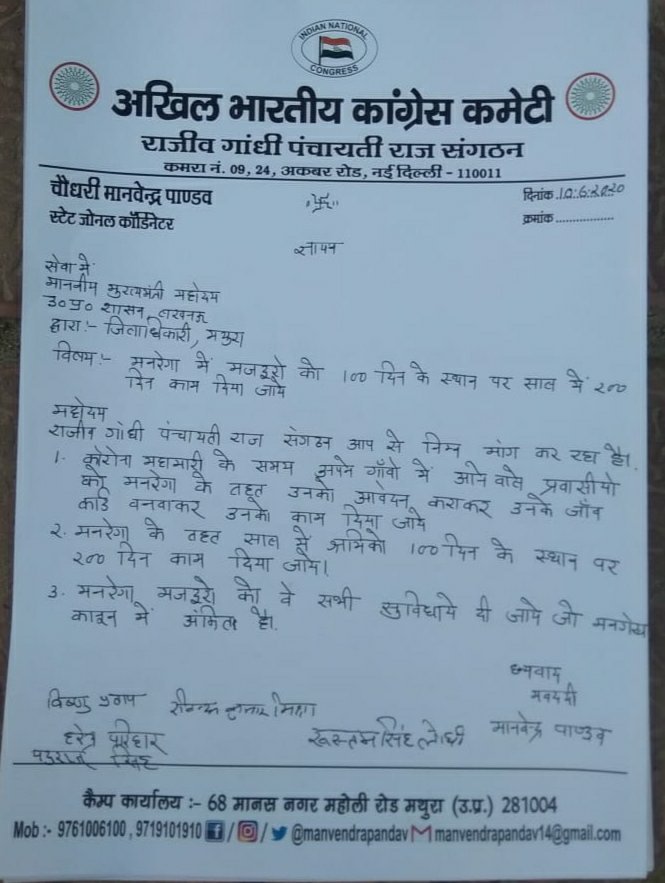 INDIAN NATIONAL
CONGRESS
अखिल भारतीय कांग्रेस कमेटी
राजीव गांधी पंचायती राज संगठन
कमरा नं. 09, 24, अकबर रोड, नई दिल्ली - 110011
चौधरी मानवेन्द्र पाण्डव
स्टेट जोनल कॉर्डिनेटर
दिनांक .10.6.2020
क्रमांक ................
ज्ञापन
सेवा में
माननीय मुख्यमंत्री महोदय
उ०प्र० शासन, लखनऊ
द्वारा:- जिलाधिकारी, मथुरा
विषय:- मनरेगा में मजदूरो को 100 दिन के स्थान पर साल में 200
दिन काम दिया जाये
महोदय
राजीव गांधी पंचायती राज संगठन आप से निम्न मांग कर रहा है।
1. कोरोना महामारी के समय अपने गाँवो में आने वाले प्रवासीयो
को मनरेगा के तहत उनको आवेदन कराकर उनके जॉब
कार्ड बनवाकर उनको काम दिया जाये
2. मनरेगा के तहत साल में श्रमिको 100 दिन के स्थान पर
200 दिन काम दिया जाये।
3. मनरेगा मजदूरो को वे सभी सुविधाये दी जाये जो मनरेगा
कानून में अंकित है।
धन्यवाद
भवदीय
विष्णु
मानवेन्द्र पाण्डव
परिहार
सिंह
कैम्प कार्यालय :- 68 मानस नगर महोली रोड मथुरा (उ.प्र.) 281004
Mob :- 9761006100 , 9719101910 / / @manvendrapandav manvendrapandav14@gmail.com